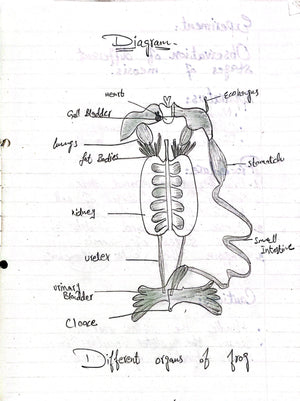 Diagram
heart
Esophagus
Gall Bladder
lungs
fat Bodies
stomatch
kidney
ureter
Small
Intestine
urinary
Bladder
Cloace
Different organs of frog